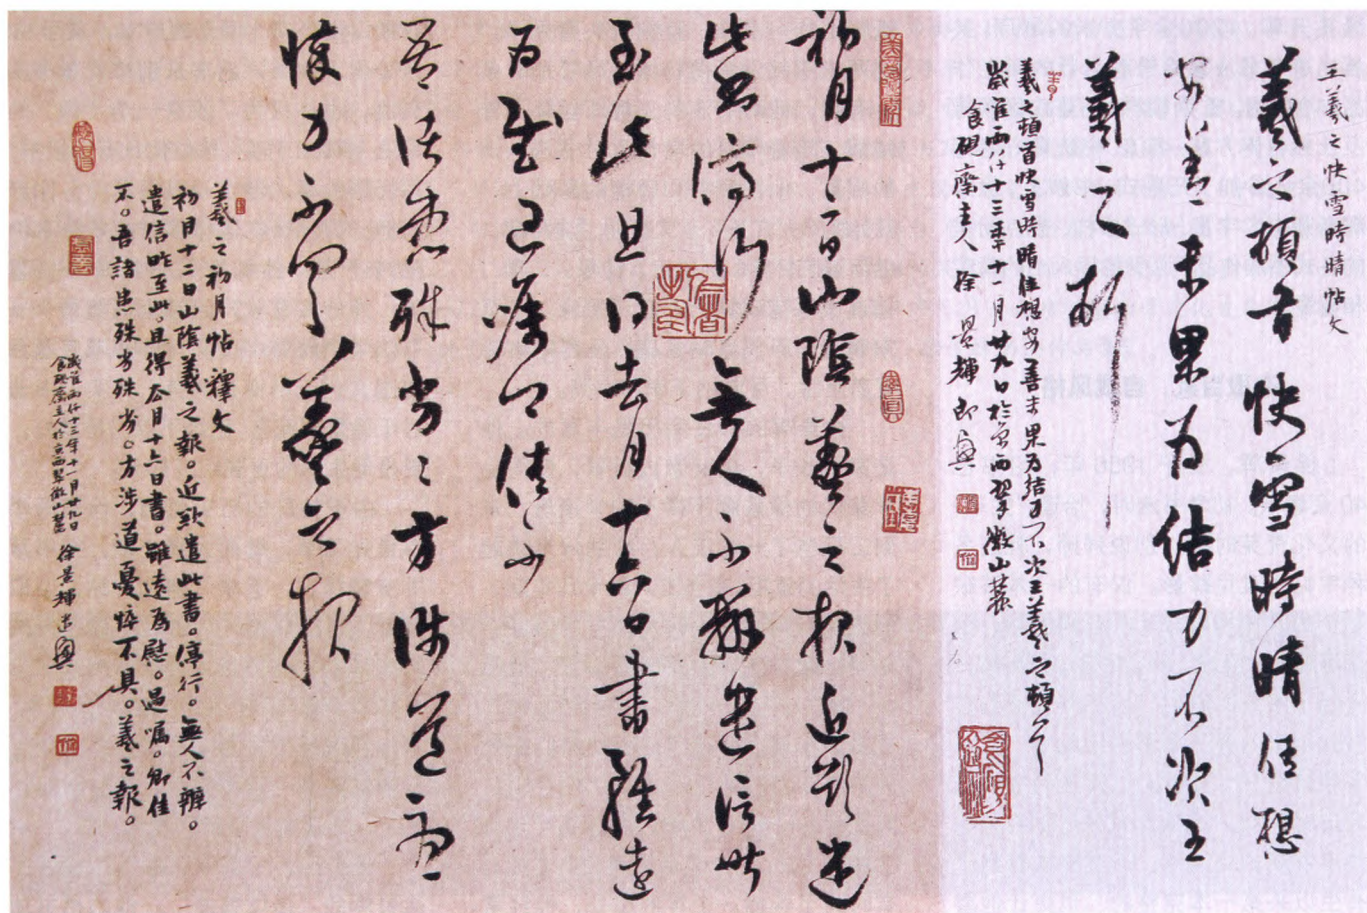 王羲之快雪時晴帖文
羲之頓首快雪時晴佳想
安善未果为结力不次王
羲之頓首
羲之頓首快雪時晴佳想安善未果为結力不次王羲之頓首
十三年十一月廿九日於京西翠微山麓
食硯齋主人徐景輝
初月十二日山陰羲之報近欲遣
此書停行無人不辦遣信昨
至此且得去月十六日書雖遠
为慰過囑卿佳不
吾諸患殊劣〻方涉道憂
悴力不具羲之報
羲之初月帖釋文
初月十二日山陰羲之報。近欲遣此書。停行。無人不辦。
遣信昨至此。且得去月十六日書。雖遠為慰。過囑。卿佳
不。吾諸患殊劣殊劣。方涉道憂悴不具。羲之報。
十三年十一月廿九日
食硯齋主人於京西翠微山麓 徐景輝